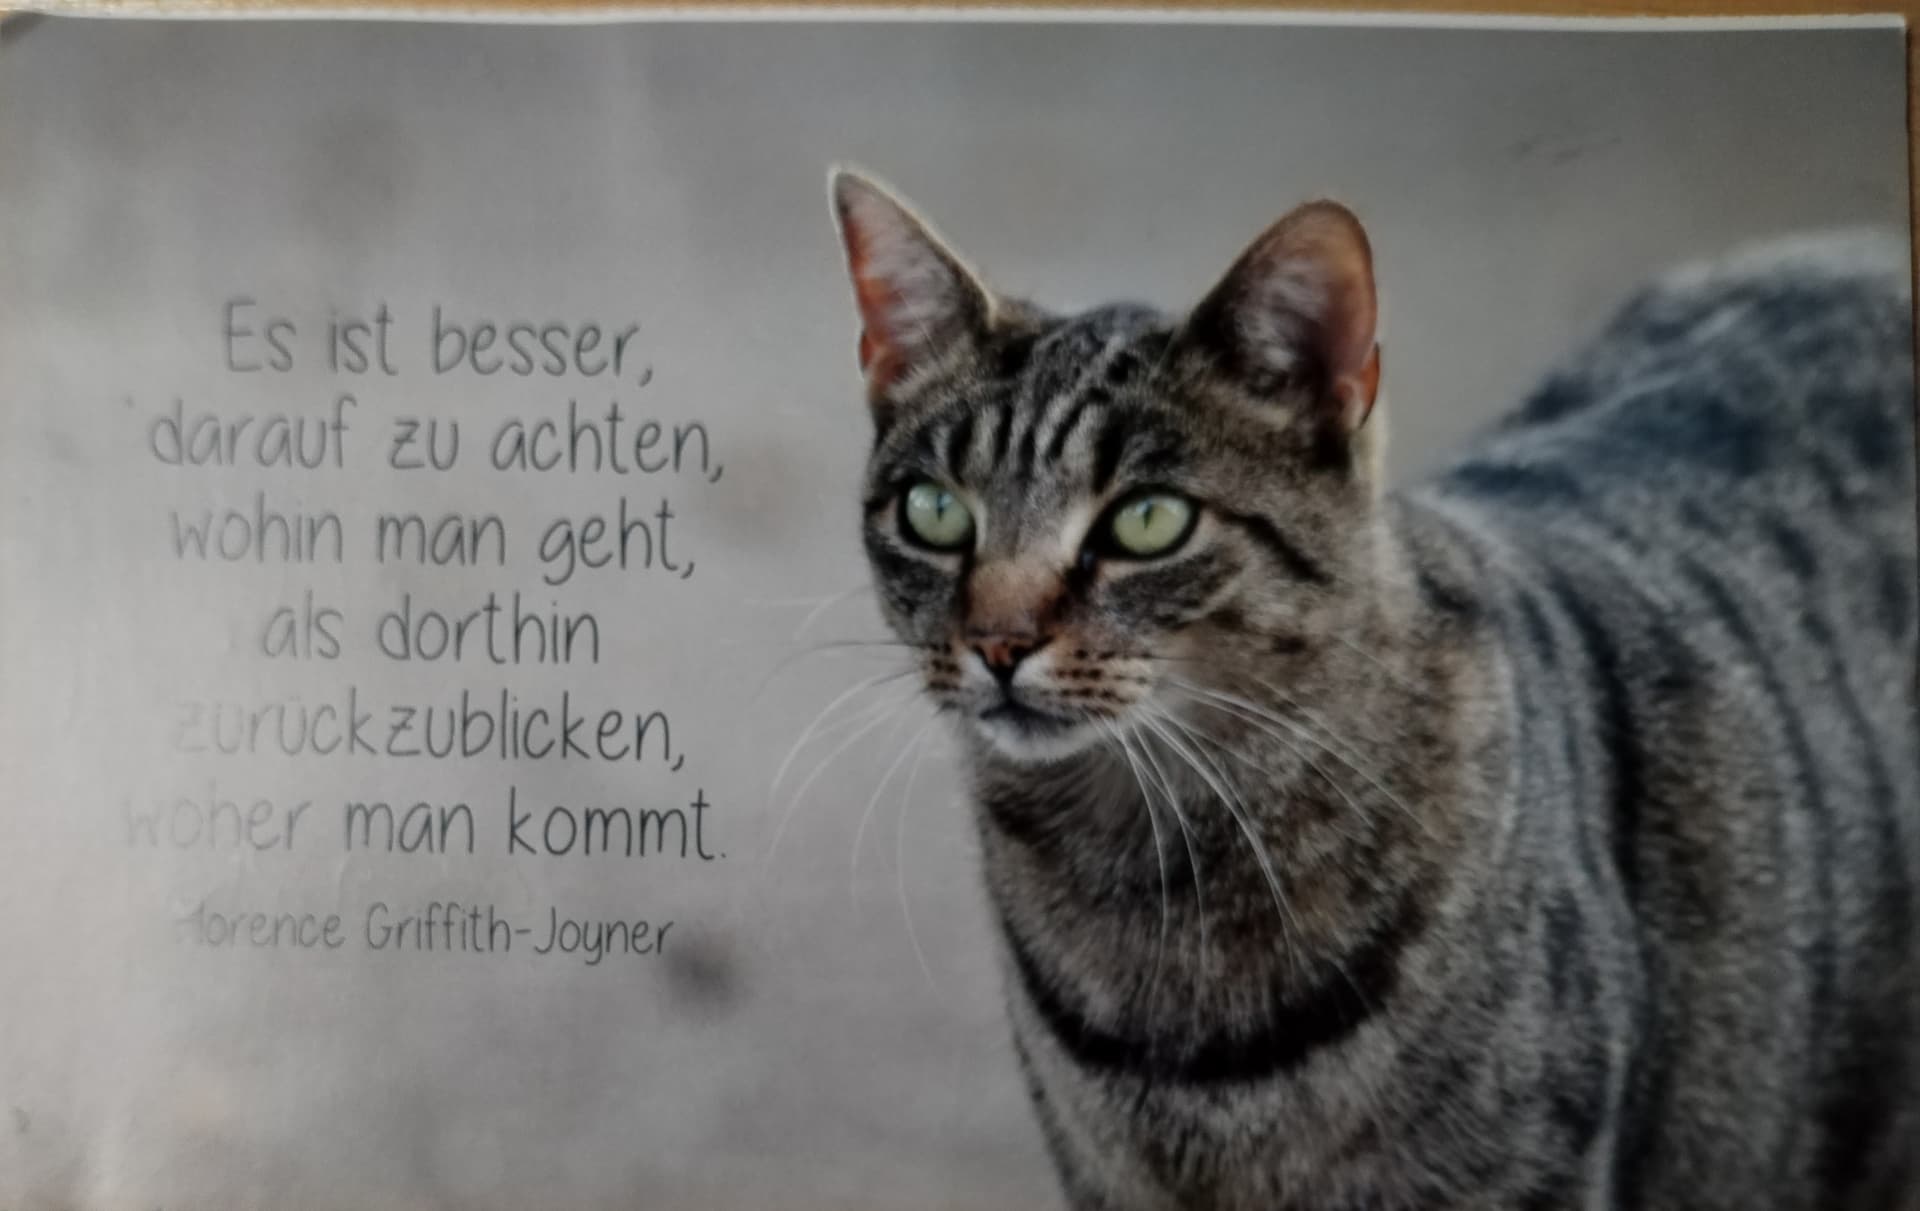 Es ist besser,
darauf zu achten,
wohin man geht,
als dorthin
zurückzublicken,
woher man kommt.
Florence Griffith-Joyner